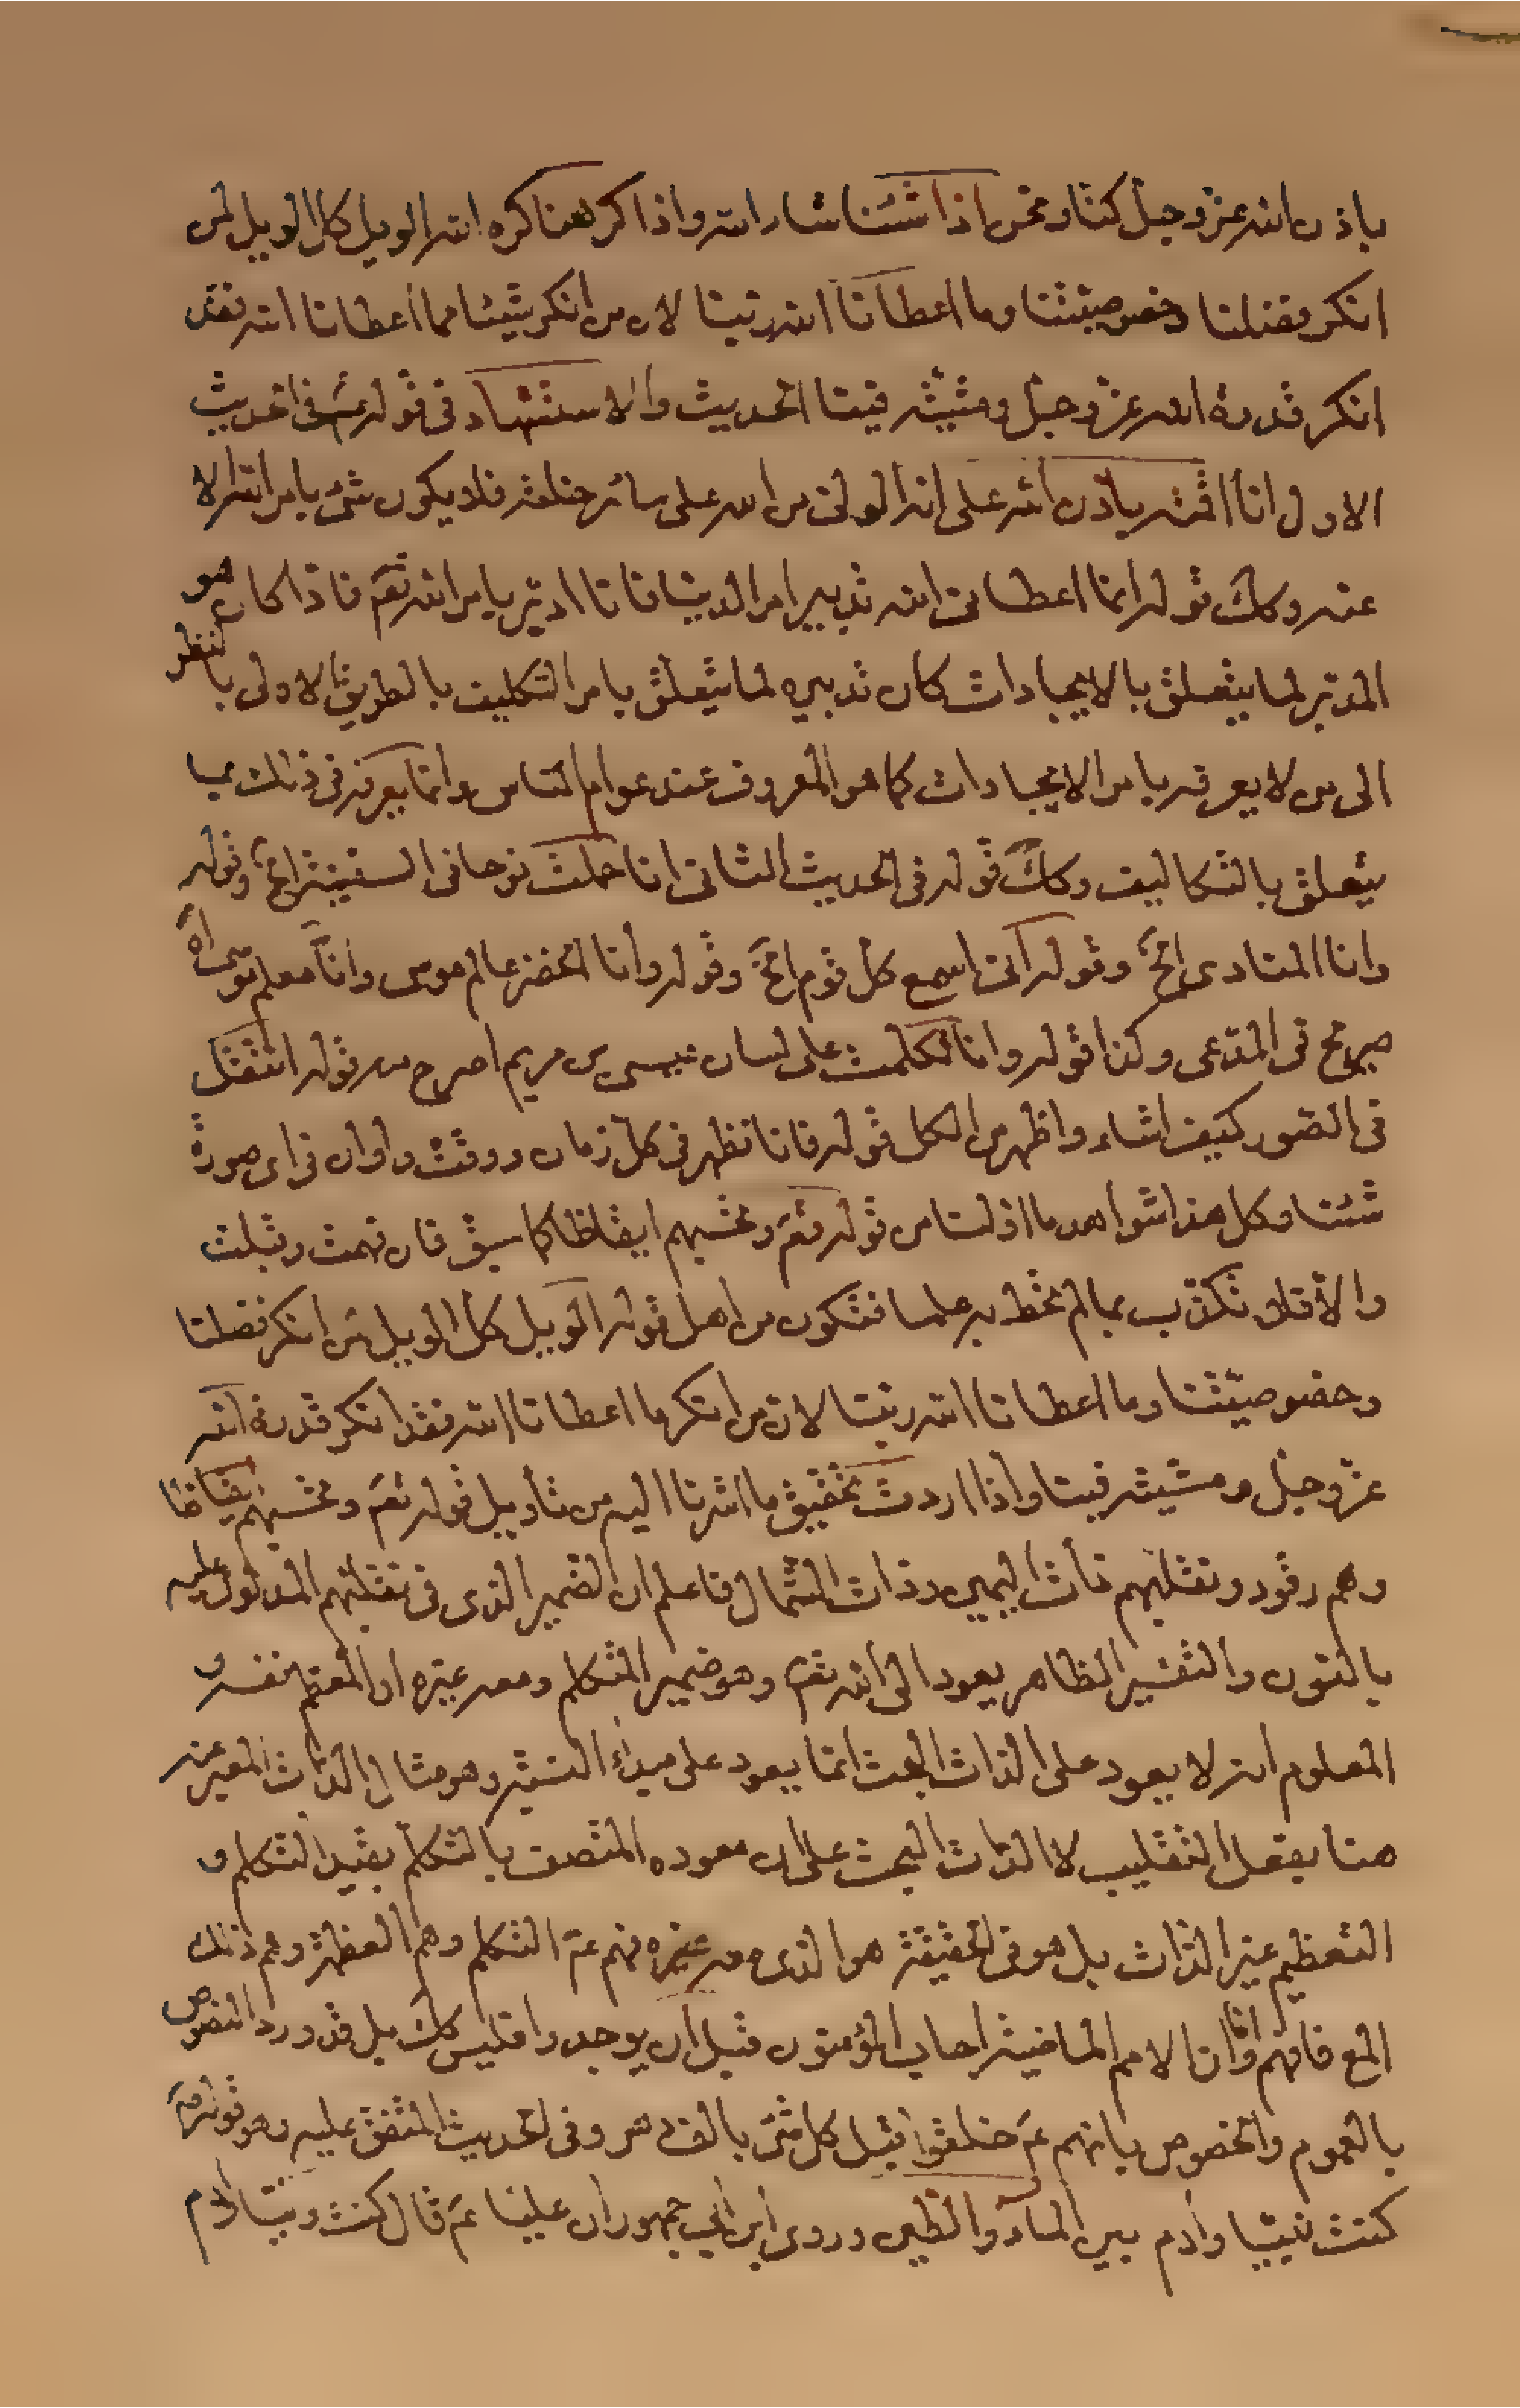 باذن الله عز وجل كنا ونحن اذا شئنا شاء الله واذا كرهنا كره الله الويل كل الويل لمن
انكر فضلنا وخصوصيتنا وما اعطانا الله ربنا لان من انكر شيئا مما اعطانا الله فقد
انكر قدرة الله عز وجل ومشيته فينا الحديث والاستشهاد فى قوله ع فى الحديث
الاول انا اقمته باذن الله على انه الولى من الله على سائر خلقه فلا يكون شئ بامر الله الا
عنه وكك قوله انما اعطانى الله تدبير امر الدنيا فانا ادبر بامر الله تع فاذا كان هو
المدبر لما يتعلق بالايجادات كان تدبيره لما يتعلق بامر التكليف بالطريق الاولى بالنظر
الى من لا يعرفه بامر الايجادات كما هو المعروف عند عوام الناس وانما يعرفه فى ذلك بما
يتعلق بالتكاليف وكك قوله فى الحديث الثانى انا حملت نوحا فى السفينة الخ وقوله
وانا المنادى الخ وقوله انى اسمع كل قوم الخ وقوله وانا الخضر عالم موسى وانا معلم موسى اه
صريح فى المدعى وكذا قوله وانا تكلمت على لسان عيسى بن مريم اصرح منه قوله اتنقل
فى الصور كيف اشاء واظهر من الكل قوله فانا نظهر فى كل زمان ووقت واوان فى اى صورة
شئنا وكل هذا شواهد ما اولنا من قوله تع وتحسبهم ايقاظا كما سبق فان فهمت وقبلت
والا فلا تكذب بما لم تحط به علما فتكون من اهل قوله الويل كل الويل لمن انكر فضلنا
وخصوصيتنا وما اعطانا الله ربنا لان من انكر ما اعطانا الله فقد انكر قدرة الله
عز وجل ومشيته فينا واذا اردت تحقيق ما اشرنا اليه من تأويل قوله تع وتحسبهم ايقاظا
وهم رقود ونقلبهم ذات اليمين وذات الشمال فاعلم ان الضمير الذى فى نقلبهم المدلول عليه
بالنون والتفسير الظاهر يعود الى الله تع وهو ضمير المتكلم ومعه غيره او المعظم نفسه و
المعلوم انه لا يعود على الذات البحت انما يعود على مبدء النسبة وهو مثال الذات المعبر عنه
هنا بفعل التقليب لا الذات البحت على ان معوده المتصف بالتكلم بقيد التكلم و
التعظيم غير الذات بل هو فى الحقيقة هو الذى معه غيره فهم ع التكلم وهم العظمة وهم ذلك
المع فافهم وان الامم الماضية اجاب المؤمنون قبل ان يوجدوا فليس كك بل قد ورد النصوص
بالعموم والخصوص بانهم ع خلقوا قبل كل شئ بالف دهر وفى الحديث المتفق عليه وهو قوله ص
كنت نبيا وادم بين الماء والطين وروى ابن ابى جمهور ان عليا ع قال كنت وليا وادم